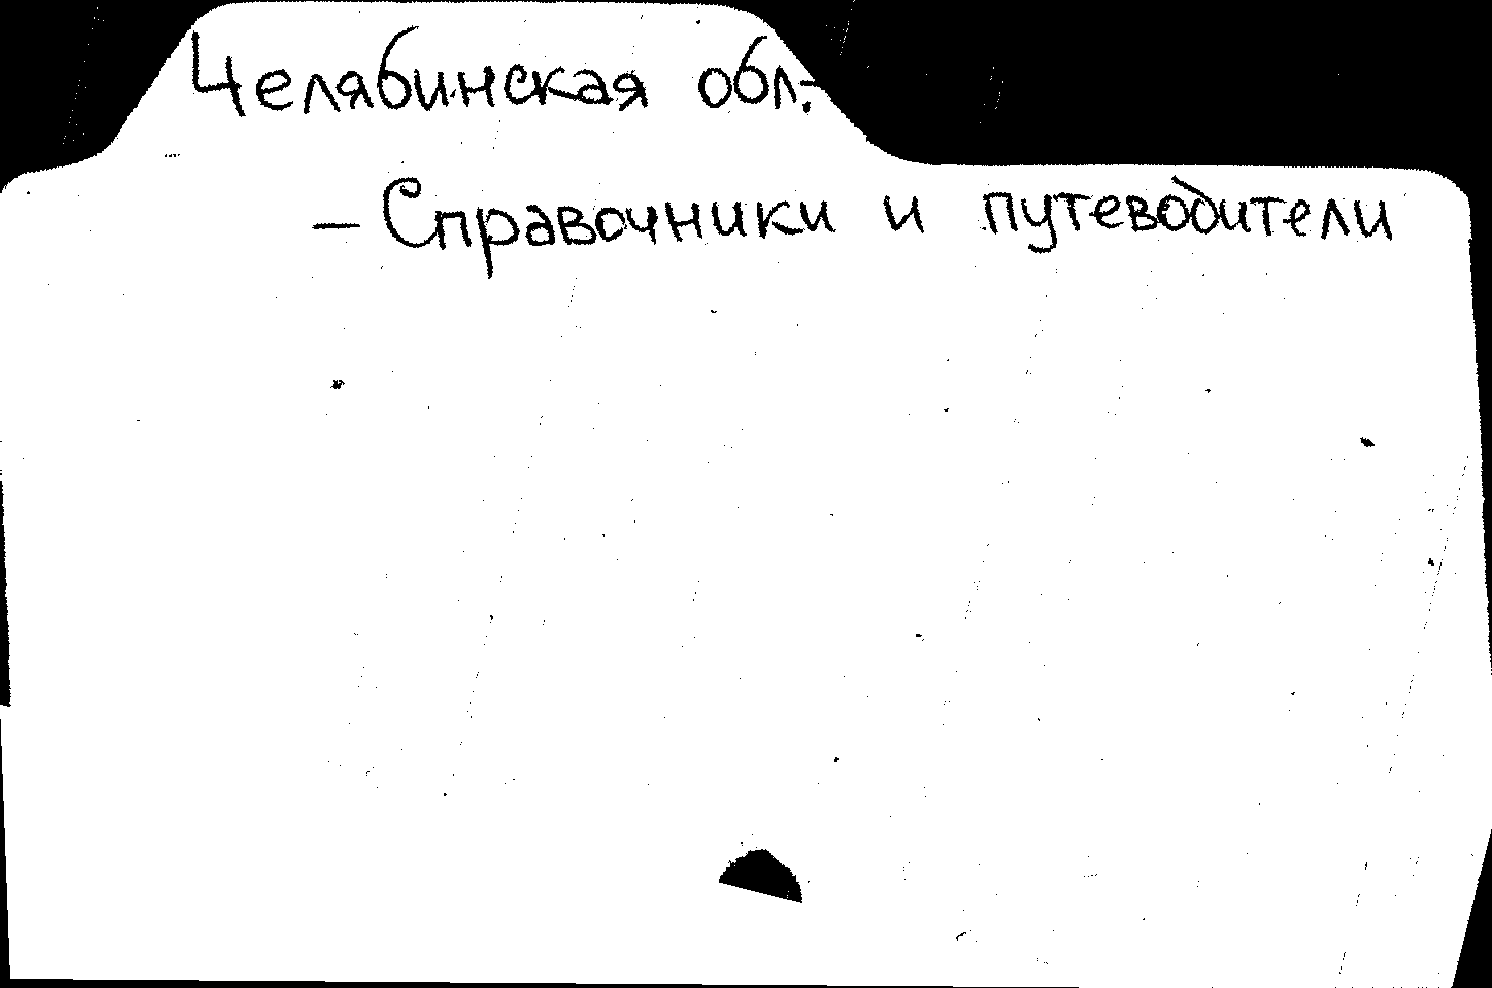 Челябинская обл.-
– Справочники и путеводители